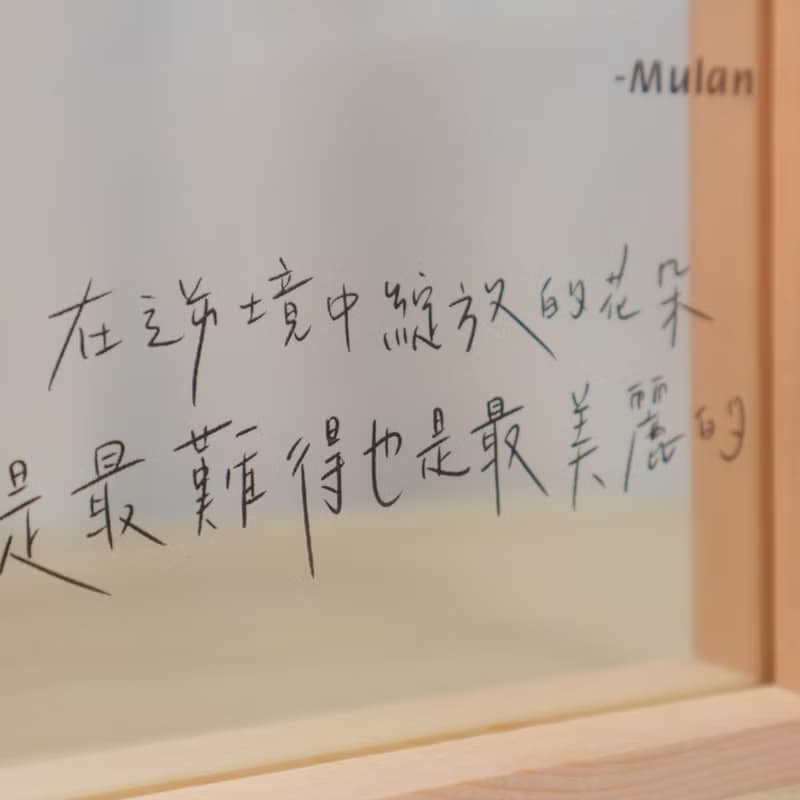 -Mulan
在逆境中綻放的花朵
是最難得也是最美麗的